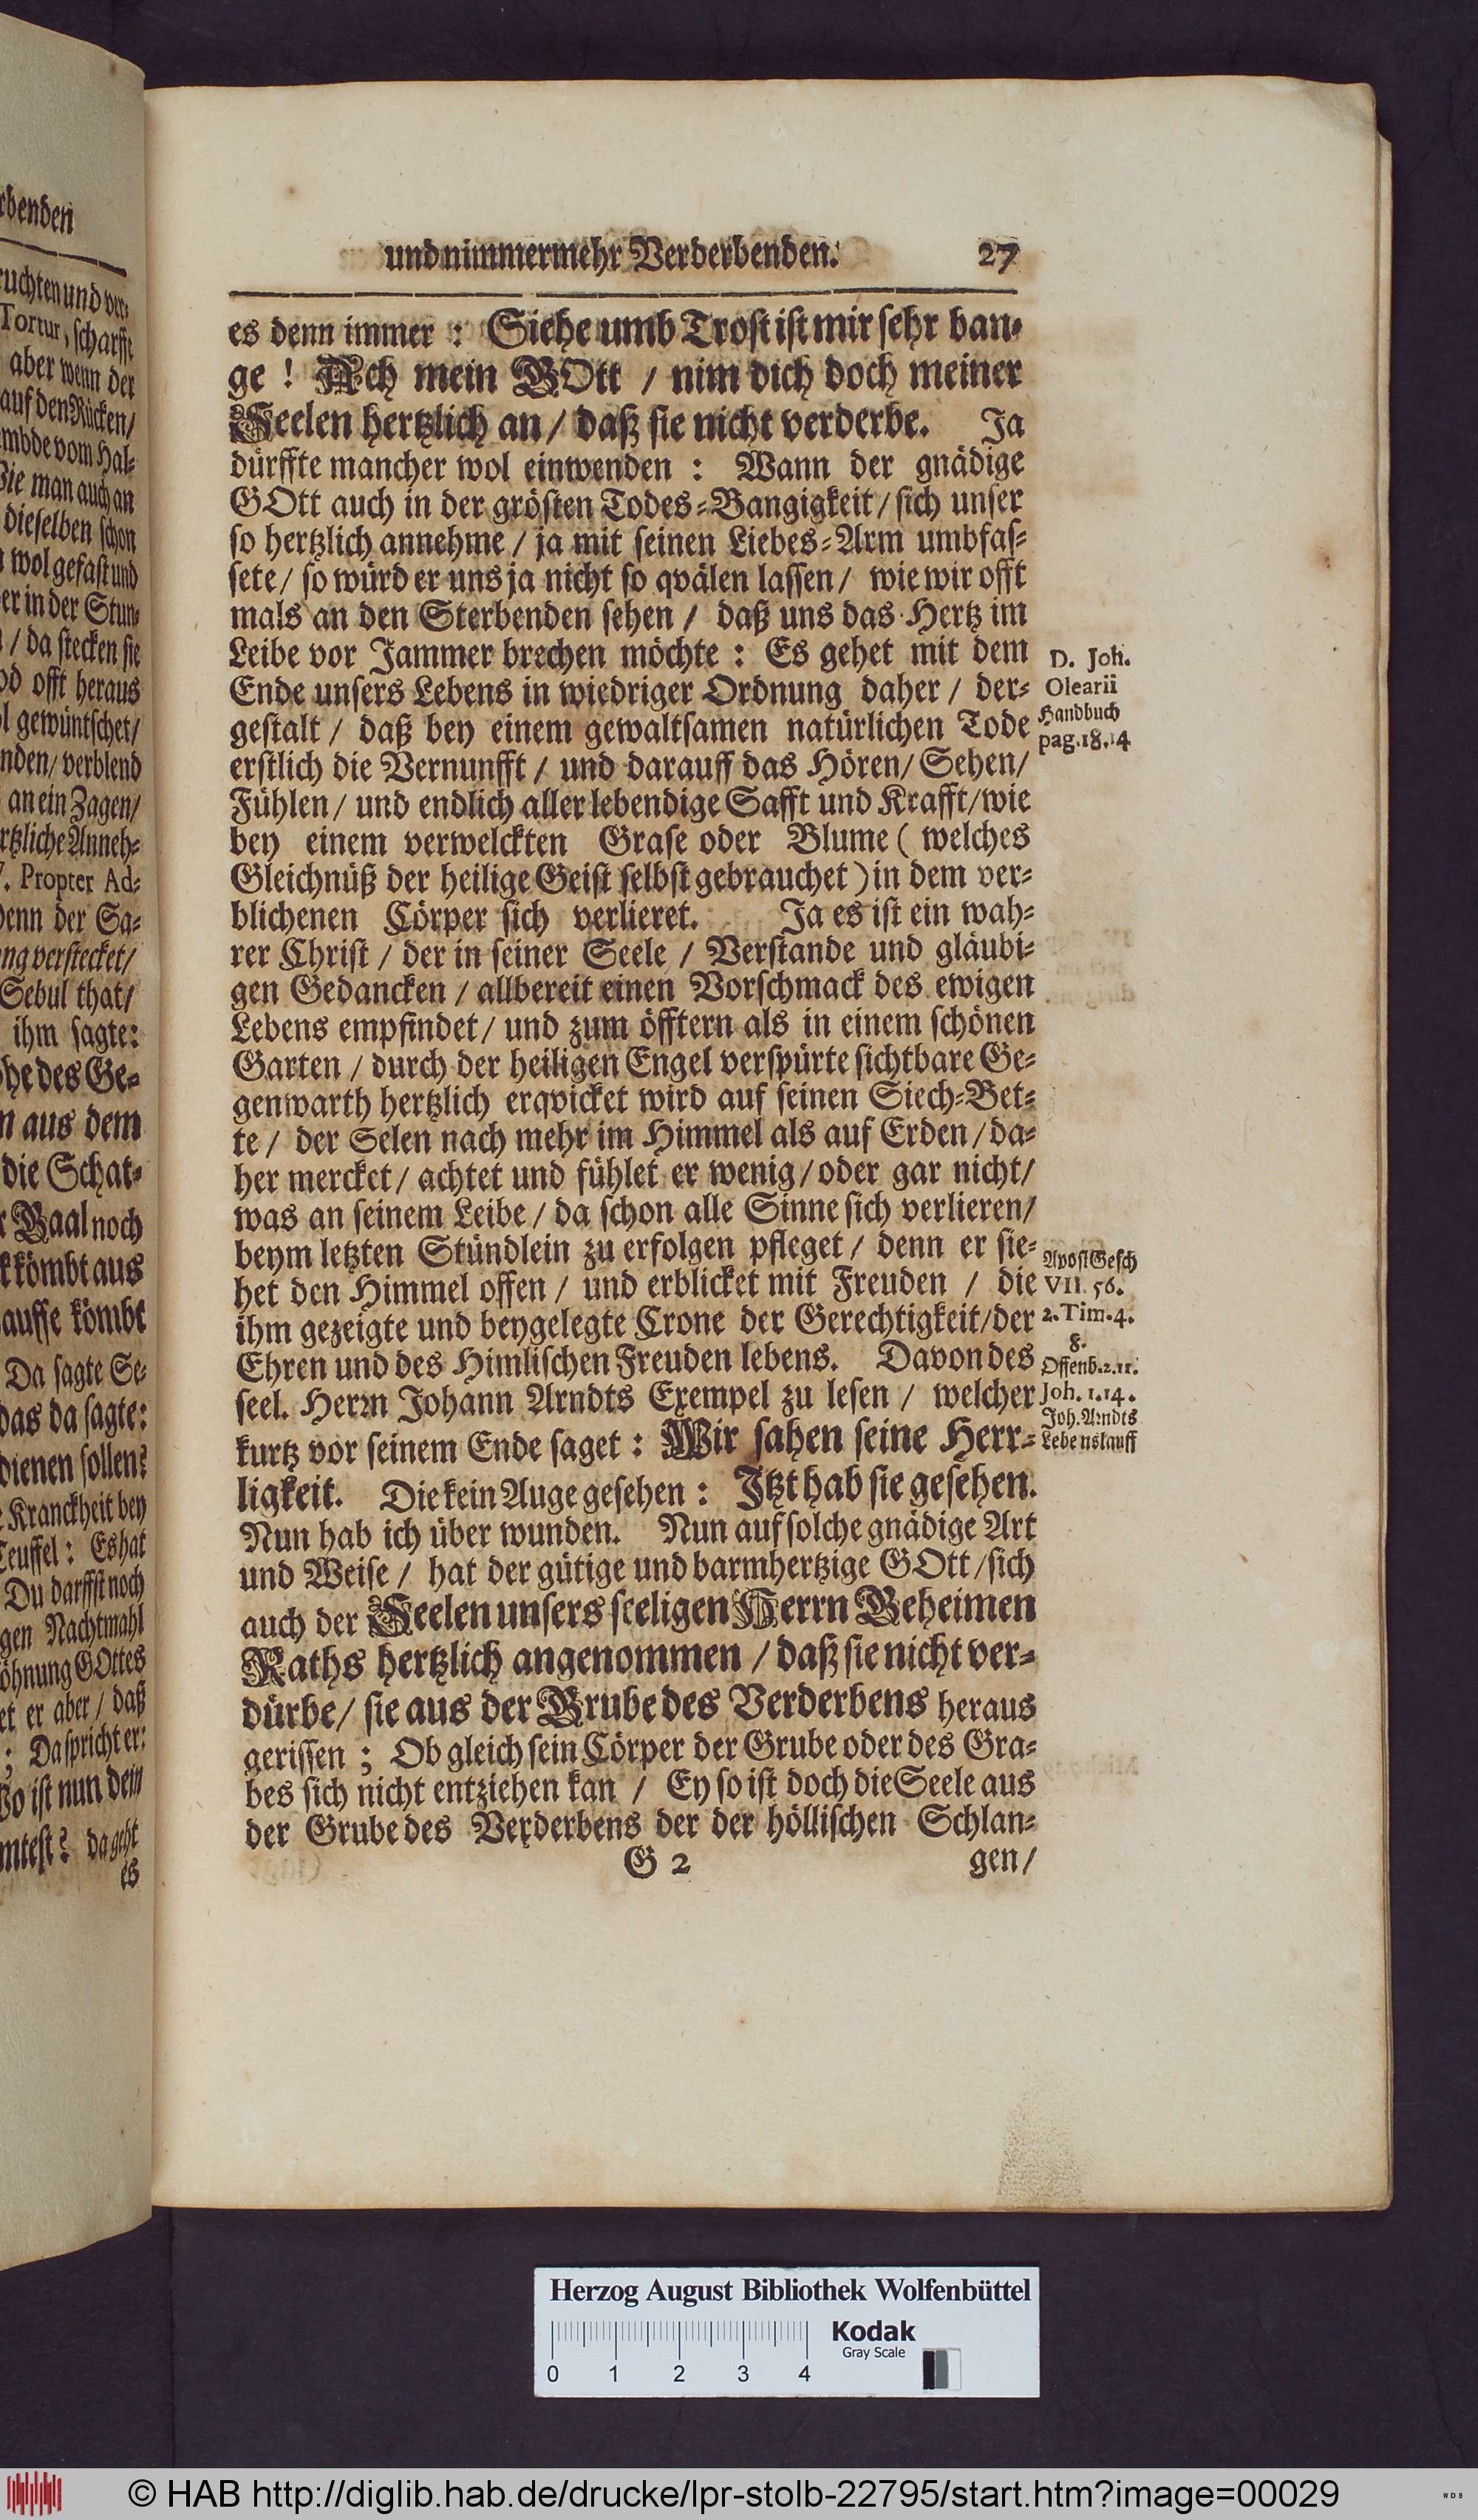 und nimmermehr Verderbenden. 27
es denn immer : Siehe umb Trost ist mir sehr ban-
ge ! Ach mein GOtt / nim dich doch meiner
Seelen hertzlich an / daß sie nicht verderbe. Ja
dürffte mancher wol einwenden : Wann der gnädige
GOtt auch in der grösten Todes-Bangigkeit / sich unser
so hertzlich annehme / ja mit seinen Liebes-Arm umbfas-
sete / so würd er uns ja nicht so qvälen lassen / wie wir offt
mals an den Sterbenden sehen / daß uns das Hertz im
Leibe vor Jammer brechen möchte : Es gehet mit dem
Ende unsers Lebens in wiedriger Ordnung daher / der-
gestalt / daß bey einem gewaltsamen natürlichen Tode
erstlich die Vernunfft / und darauff das Hören / Sehen /
Fühlen / und endlich aller lebendige Safft und Krafft / wie
bey einem verwelckten Grase oder Blume ( welches
Gleichnüß der heilige Geist selbst gebrauchet ) in dem ver-
blichenen Cörper sich verlieret. Ja es ist ein wah-
rer Christ / der in seiner Seele / Verstande und gläubi-
gen Gedancken / allbereit einen Vorschmack des ewigen
Lebens empfindet / und zum öfftern als in einem schönen
Garten / durch der heiligen Engel verspürte sichtbare Ge-
genwarth hertzlich erqvicket wird auf seinen Siech-Bet-
te / der Selen nach mehr im Himmel als auf Erden / da-
her mercket / achtet und fühlet er wenig / oder gar nicht /
was an seinem Leibe / da schon alle Sinne sich verlieren /
beym letzten Stündlein zu erfolgen pfleget / denn er sie-
het den Himmel offen / und erblicket mit Freuden / die
ihm gezeigte und beygelegte Crone der Gerechtigkeit / der
Ehren und des Himlischen Freuden lebens. Davon des
seel. Herrn Johann Arndts Exempel zu lesen / welcher
kurtz vor seinem Ende saget : Wir sahen seine Herr-
ligkeit. Die kein Auge gesehen : Jtzt hab sie gesehen.
Nun hab ich über wunden. Nun auf solche gnädige Art
und Weise / hat der gütige und barmhertzige GOtt / sich
auch der Seelen unsers seeligen Herrn Geheimen
Raths hertzlich angenommen / daß sie nicht ver-
dürbe / sie aus der Grube des Verderbens heraus
gerissen ; Ob gleich sein Cörper der Grube oder des Gra-
bes sich nicht entziehen kan / Ey so ist doch die Seele aus
der Grube des Verderbens der der höllischen Schlan-
G 2 gen /
D. Joh.
Olearii
Handbuch
pag. 18. 14
ApostGesch
VII. 56.
2. Tim. 4.
8.
Offenb. 2. 11.
Joh. 1. 14.
Joh. Arndts
Lebenslauff
rbenden
uchten und ver-
Tortur, scharffe
aber wenn der
auf den Rücken /
mbde vom Hal-
Sie man auch an
dieselben schon
wol gefast und
er in der Stun-
/ da stecken sie
od offt heraus
l gewüntschet /
nden / verblend
an ein Zagen /
rtzliche Anneh-
. Propter Ad-
denn der Sa-
ng verstecket /
Sebul that /
ihm sagte:
he des Ge-
n aus dem
die Schat-
r Baal noch
k kömbt aus
auffe kömbt
Da sagte Se-
das da sagte:
dienen sollen?
Kranckheit bey
Teuffel : Es hat
Du darffst noch
gen Nachtmahl
öhnung GOttes
et er aber / daß
; Da spricht er:
Wo ist nun dein
mtest? da geht
es
Herzog August Bibliothek Wolfenbüttel
Kodak
Gray Scale
0 1 2 3 4
© HAB http://diglib.hab.de/drucke/lpr-stolb-22795/start.htm?image=00029
WDB